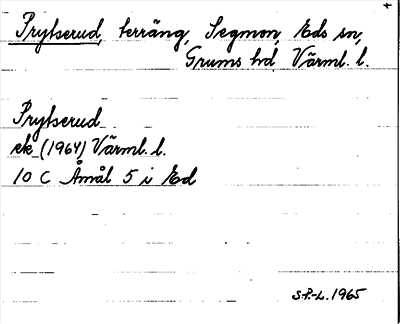 Prytserud, terräng, Segmon, Eds sn,
Grums hd, Värml. l.
Prytserud
ek (1964) Värml. l.
10 C Åmål 5 i Ed
S.P.-L. 1965